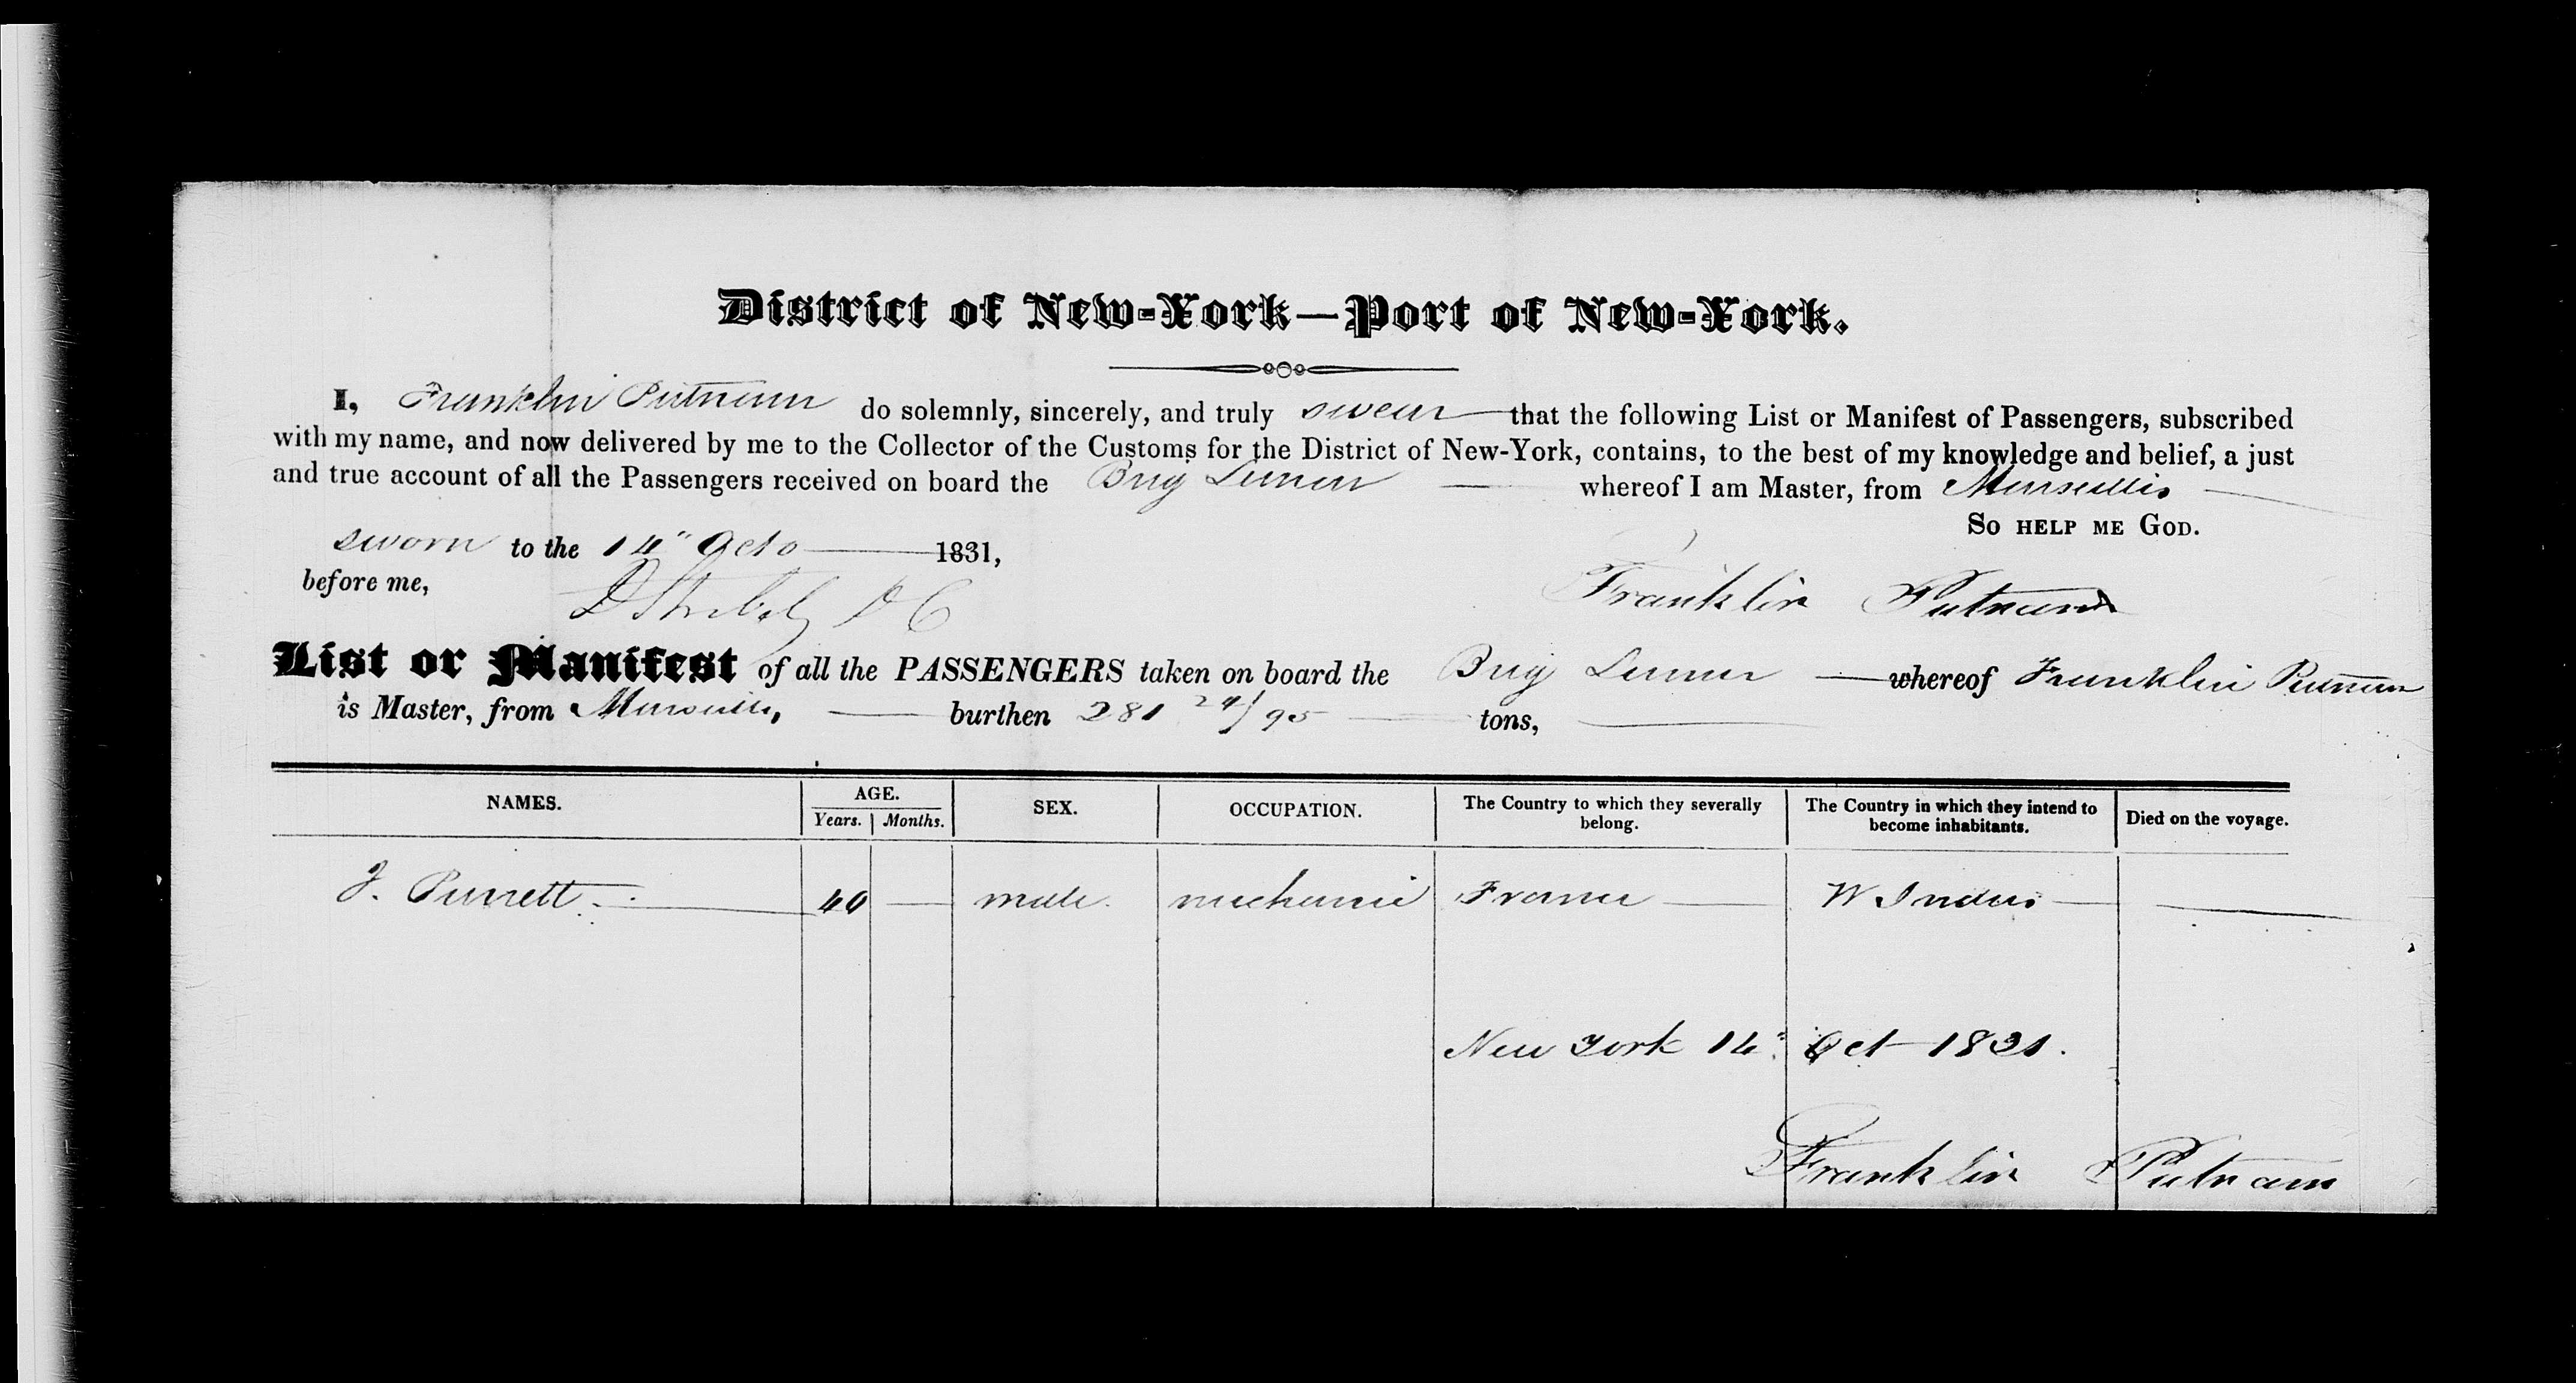 District of New-York—Port of New-York.
I, Franklin Putnam do solemnly, sincerely, and truly swear that the following List or Manifest of Passengers, subscribed
with my name, and now delivered by me to the Collector of the Customs for the District of New-York, contains, to the best of my knowledge and belief, a just
and true account of all the Passengers received on board the Brig whereof I am Master, from Marseilles
So help me God.
sworn to the 14" Octo 1831,
before me, D C
Franklin Putnam
List or Manifest of all the PASSENGERS taken on board the Brig whereof Franklin Putnam
is Master, from Marseilles, burthen 281 24/95 tons,
NAMES. AGE. SEX. OCCUPATION. The Country to which they severally belong. The Country in which they intend to become inhabitants. Died on the voyage.
Years. Months.
J. 40 male. mechanic France W Indies
New York 14" Oct 1831.
Franklin Putnam